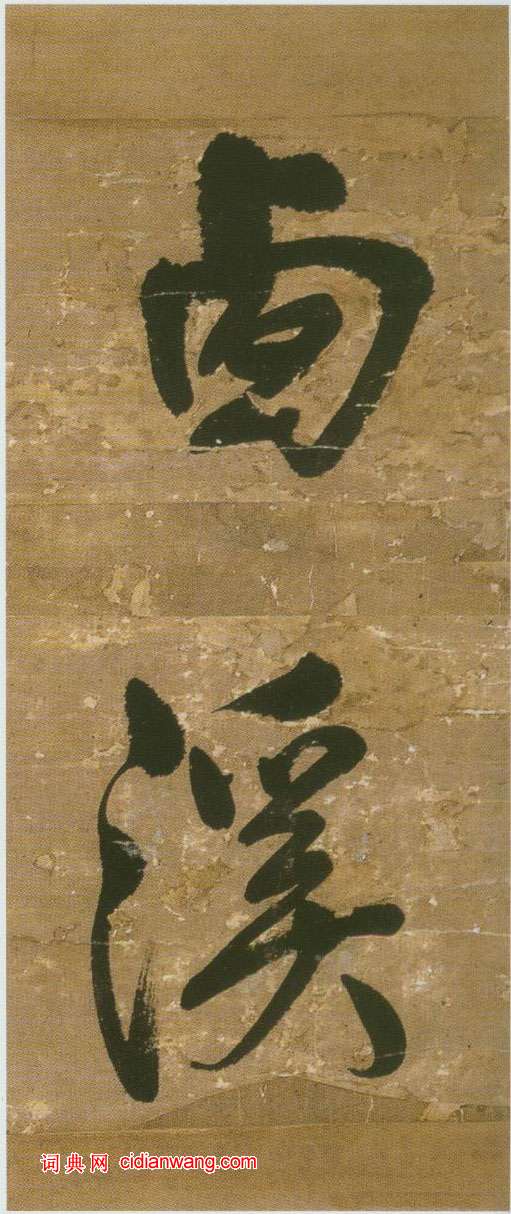 溪
词典网 cidianwang.com